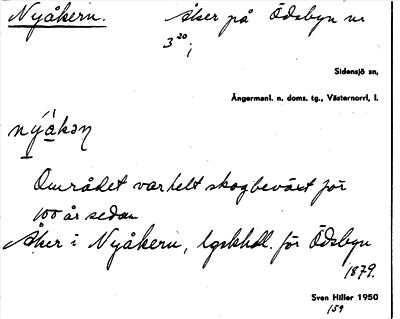 Nyåkern. Åker på Ödsbyn nr
3 20;
Sidensjö sn,
Ångermanl. n. doms. tg., Västernorrl, l.
nýåkən
Området var helt skogbeväxt för
100 år sedan
Åker i Nyåkern, lgskhdl. för Ödsbyn
1879.
Sven Hiller 1950
159